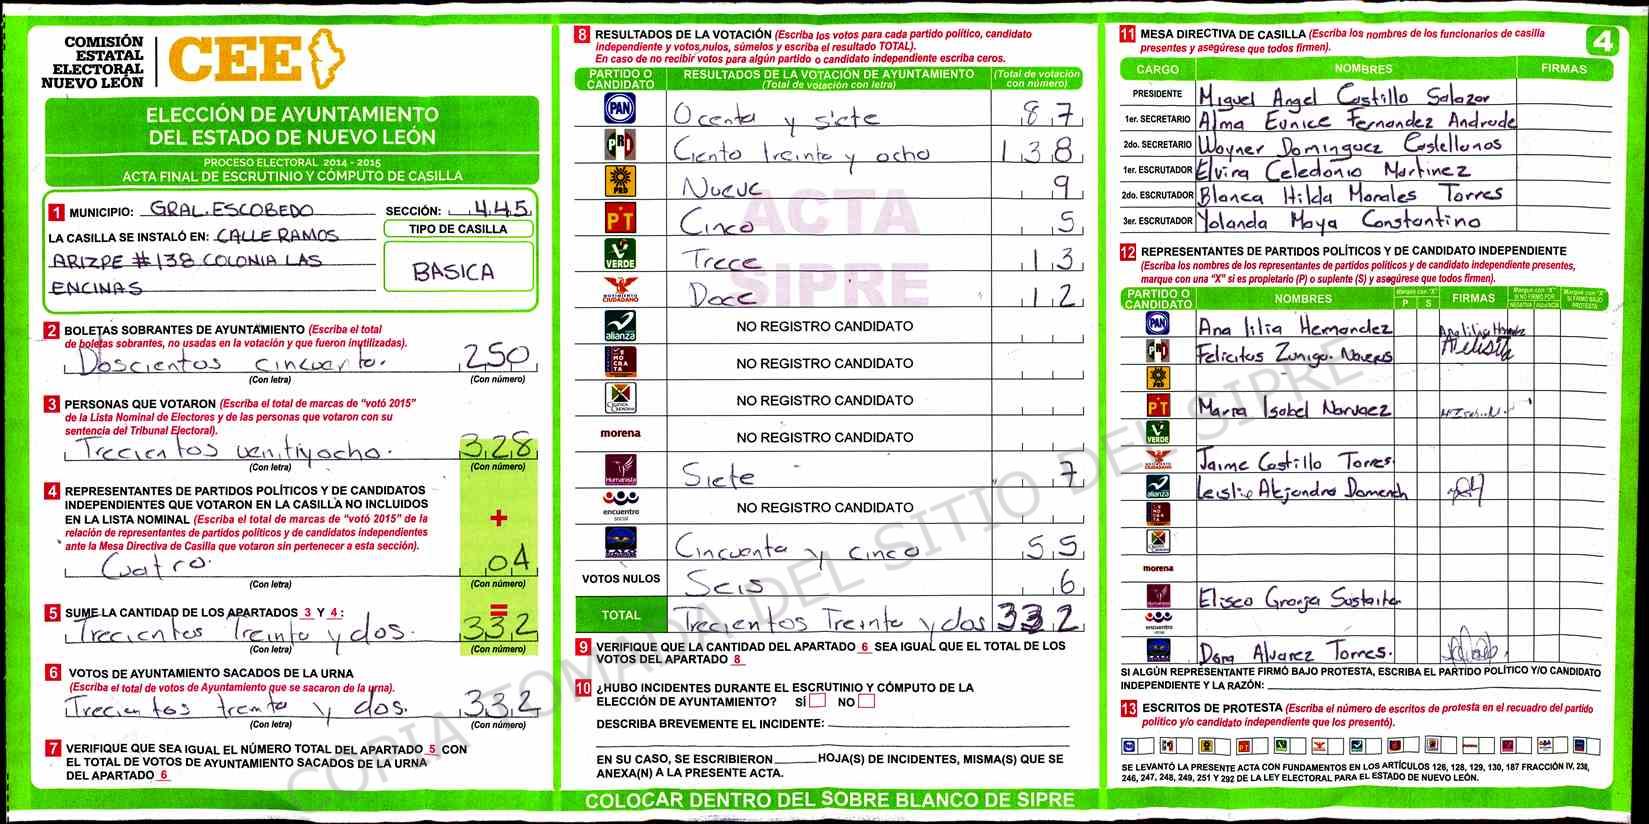 COMISIÓN
ESTATAL
ELECTORAL
NUEVO LEÓN
CEE
ELECCIÓN DE AYUNTAMIENTO
DEL ESTADO DE NUEVO LEÓN
PROCESO ELECTORAL 2014 - 2015
ACTA FINAL DE ESCRUTINIO Y CÓMPUTO DE CASILLA
1 MUNICIPIO: GRAL. ESCOBEDO SECCIÓN: 445
LA CASILLA SE INSTALÓ EN: CALLE RAMOS
ARIZPE #138 COLONIA LAS
ENCINAS
TIPO DE CASILLA
BASICA
2 BOLETAS SOBRANTES DE AYUNTAMIENTO (Escriba el total
de boletas sobrantes, no usadas en la votación y que fueron inutilizadas).
Doscientos cincuenta. 250
(Con letra) (Con número)
3 PERSONAS QUE VOTARON (Escriba el total de marcas de “votó 2015”
de la Lista Nominal de Electores y de las personas que votaron con su
sentencia del Tribunal Electoral).
Trecientos ventiyocho. 328
(Con letra) (Con número)
4 REPRESENTANTES DE PARTIDOS POLÍTICOS Y DE CANDIDATOS
INDEPENDIENTES QUE VOTARON EN LA CASILLA NO INCLUIDOS
EN LA LISTA NOMINAL (Escriba el total de marcas de “votó 2015” de la
relación de representantes de partidos políticos y de candidatos independientes
ante la Mesa Directiva de Casilla que votaron sin pertenecer a esta sección).
+
Cuatro. 04
(Con letra) (Con número)
5 SUME LA CANTIDAD DE LOS APARTADOS 3 Y 4 : =
Trecientos Treinta y dos. 332
(Con letra) (Con número)
6 VOTOS DE AYUNTAMIENTO SACADOS DE LA URNA
(Escriba el total de votos de Ayuntamiento que se sacaron de la urna).
Trecientos treinta y dos. 332
(Con letra) (Con número)
7 VERIFIQUE QUE SEA IGUAL EL NÚMERO TOTAL DEL APARTADO 5 CON
EL TOTAL DE VOTOS DE AYUNTAMIENTO SACADOS DE LA URNA
DEL APARTADO 6
8 RESULTADOS DE LA VOTACIÓN (Escriba los votos para cada partido político, candidato
independiente y votos nulos, súmelos y escriba el resultado TOTAL).
En caso de no recibir votos para algún partido o candidato independiente escriba ceros.
PARTIDO O CANDIDATO RESULTADOS DE LA VOTACIÓN DE AYUNTAMIENTO (Total de votación con letra) (Total de votación con número)
PAN Ocenta y siete 87
PRI Ciento treinta y ocho 138
PRD Nueve 9
PT Cinco 5
VERDE Trece 13
MOVIMIENTO CIUDADANO Doce 12
alianza NO REGISTRO CANDIDATO
DEMOCRATA NO REGISTRO CANDIDATO
NO REGISTRO CANDIDATO
morena NO REGISTRO CANDIDATO
Humanista Siete 7
encuentro social NO REGISTRO CANDIDATO
Cincuenta y cinco 55
VOTOS NULOS Seis 6
TOTAL Trecientos Treinta y dos 332
ACTA
SIPRE
9 VERIFIQUE QUE LA CANTIDAD DEL APARTADO 6 SEA IGUAL QUE EL TOTAL DE LOS
VOTOS DEL APARTADO 8
10 ¿HUBO INCIDENTES DURANTE EL ESCRUTINIO Y CÓMPUTO DE LA
ELECCIÓN DE AYUNTAMIENTO? SÍ NO
DESCRIBA BREVEMENTE EL INCIDENTE:
EN SU CASO, SE ESCRIBIERON HOJA(S) DE INCIDENTES, MISMA(S) QUE SE
ANEXA(N) A LA PRESENTE ACTA.
COLOCAR DENTRO DEL SOBRE BLANCO DE SIPRE
COPIA TOMADA DEL SITIO DEL SIPRE
4
11 MESA DIRECTIVA DE CASILLA (Escriba los nombres de los funcionarios de casilla
presentes y asegúrese que todos firmen).
CARGO NOMBRES FIRMAS
PRESIDENTE Miguel Angel Castillo Salazar
1er. SECRETARIO Alma Eunice Fernandez Andrade
2do. SECRETARIO Wayner Dominguez Castellanos
1er. ESCRUTADOR Elvira Celedonio Martinez
2do. ESCRUTADOR Blanca Hilda Morales Torres
3er. ESCRUTADOR Yolanda Moya Constantino
12 REPRESENTANTES DE PARTIDOS POLÍTICOS Y DE CANDIDATO INDEPENDIENTE
(Escriba los nombres de los representantes de partidos políticos y de candidato independiente presentes,
marque con una “X” si es propietario (P) o suplente (S) y asegúrese que todos firmen).
PARTIDO O CANDIDATO NOMBRES P S FIRMAS
PAN Ana lilia Hernandez
PRI Felicitas Zuniga
PRD
PT Maria Isabel Narvaez
VERDE
CIUDADANO Jaime Castillo Torres.
alianza Leislie Alejandra Domench
morena
Eliseo Granja
encuentro
Dora Alvarez Torres.
SI ALGÚN REPRESENTANTE FIRMÓ BAJO PROTESTA, ESCRIBA EL PARTIDO POLÍTICO Y/O CANDIDATO
INDEPENDIENTE Y LA RAZÓN:
13 ESCRITOS DE PROTESTA (Escriba el número de escritos de protesta en el recuadro del partido
político y/o candidato independiente que los presentó).
SE LEVANTÓ LA PRESENTE ACTA CON FUNDAMENTOS EN LOS ARTÍCULOS 126, 128, 129, 130, 187 FRACCIÓN IV, 238,
246, 247, 248, 249, 251 Y 292 DE LA LEY ELECTORAL PARA EL ESTADO DE NUEVO LEÓN.